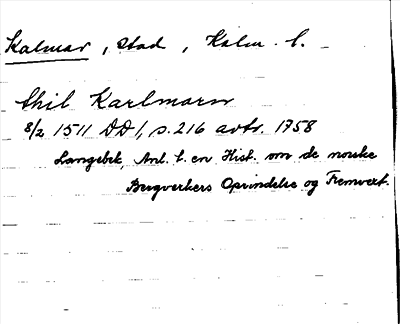 Kalmar, stad, Kalm. l.
thil Karlmarn
8/2 1511 DD 1, s. 216 avtr. 1758
Langebek, Anl. t. en Hist. om de norske
Bergverkers Oprindelse og Fremvext.